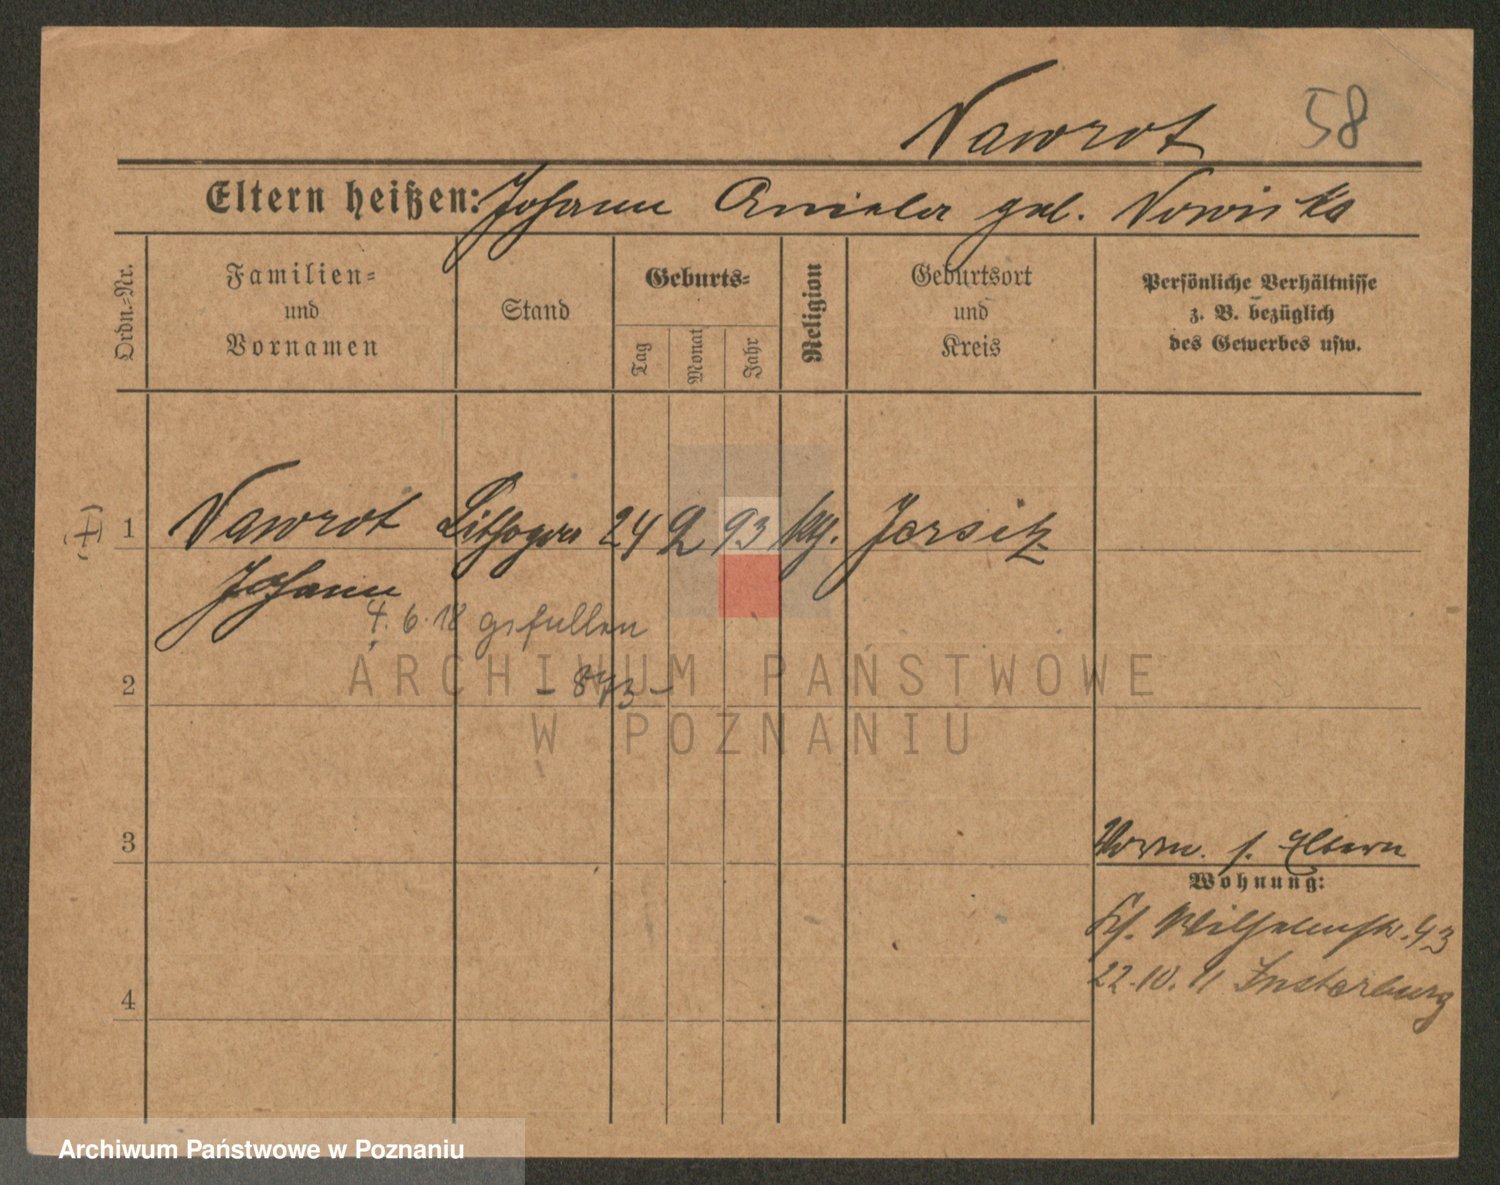 Nawrot 58
Eltern heißen: Johann Aniela geb. Nowicka
Ordn.-Nr.
Familien-
und
Vornamen
Stand
Geburts-
Tag
Monat
Jahr
Religion
Geburtsort
und
Kreis
Persönliche Verhältnisse
z. B. bezüglich
des Gewerbes usw.
1 Nawrot 24 2 93 kth. Jersitz
Johann
4. 6. 18 gefallen
2
ARCHIWUM PAŃSTWOWE
W POZNANIU
3
Vorm. s. Eltern
Wohnung:
Kl. Wilhelmstr. 43
22.10.11 Insterburg
4
Archiwum Państwowe w Poznaniu